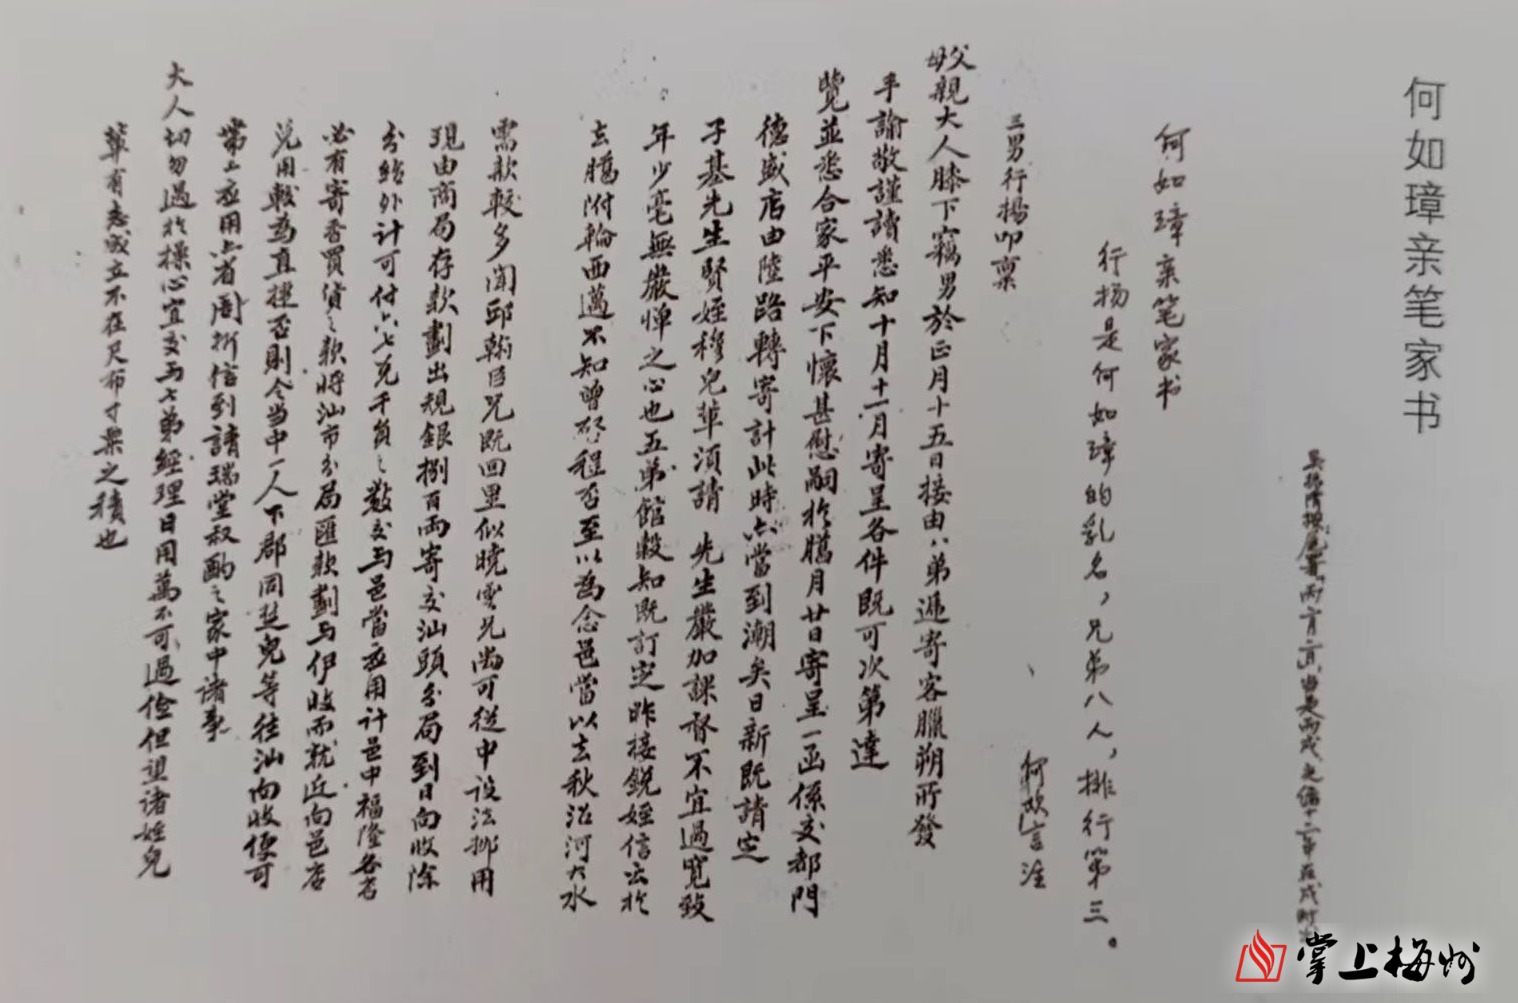 何如璋亲笔家书
何如璋亲笔家书
行扬是何如璋的乳名，兄弟八人，排行第三。
何欣言注
三男行揚叩稟
父母親大人膝下竊男於正月十五日接由八弟遞寄客臘朔所發
手諭敬謹讀悉知十月十一月寄呈各件既可次第達
覽並悉合家平安下懷甚慰嗣於臘月廿日寄呈一函係交都門
德盛店由陸路轉寄計此時亦當到潮矣日新既請定
子基先生賢姪穆兒輩須請 先生嚴加課督不宜過寬致
年少毫無嚴憚之心也五弟館穀知既訂定昨接銳姪信云於
去臘附輪西邁不知曾啓程否至以為念邑當以去秋沿河大水
需款較多聞邱翰臣兄既回里似曉雲兄尚可從中設法挪用
現由商局存款劃出規銀捌百兩寄交汕頭分局到日向收除
分給外計可付六七兌千負之數交与邑當應用計邑中福隆各店
必有寄香買貨之款將汕市分局匯款劃与伊收而就近向邑店
兌用較為直捷否則令當中一人下郡同楚兒等往汕向收便可
帶上應用亦省周折信到請瑞堂叔酌之家中諸事
大人切勿過於操心宜交与七弟經理日用萬不可過儉但望諸姪兒
輩有志成立不在尺布寸粟之積也
掌上梅州